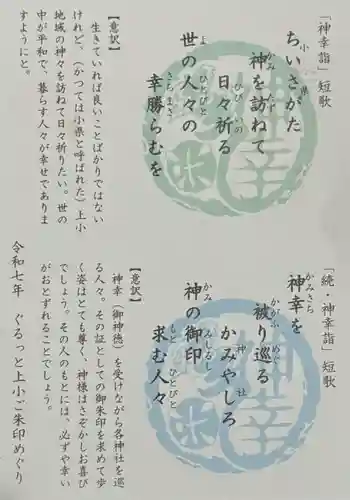 「神幸詣」短歌
ちいさがた
小県
神を訪ねて
かみ たず
日々祈る
ひび いの
世の人々の
よ ひとびと
幸勝らむを
さちまさ
【意訳】
生きていれば良いことばかりではない
けれど、(かつては小県と呼ばれた)上小
地域の神々を訪ねて日々祈りたい。世の
中が平和で、暮らす人々が幸せでありま
すようにと。
「続・神幸詣」短歌
神幸を
かみさち
被り巡る
かがふ めぐ
かみやしろ
神社
神の御印
かみ みしるし
求む人々
もと ひとびと
【意訳】
神幸(御神徳)を受けながら各神社を巡
る人々。その証としての御朱印を求めて歩
く姿はとても尊く、神様はさぞかしお喜び
でしょう。その人のもとには、必ずや幸い
がおとずれることでしょう。
令和七年 ぐるっと上小ご朱印めぐり